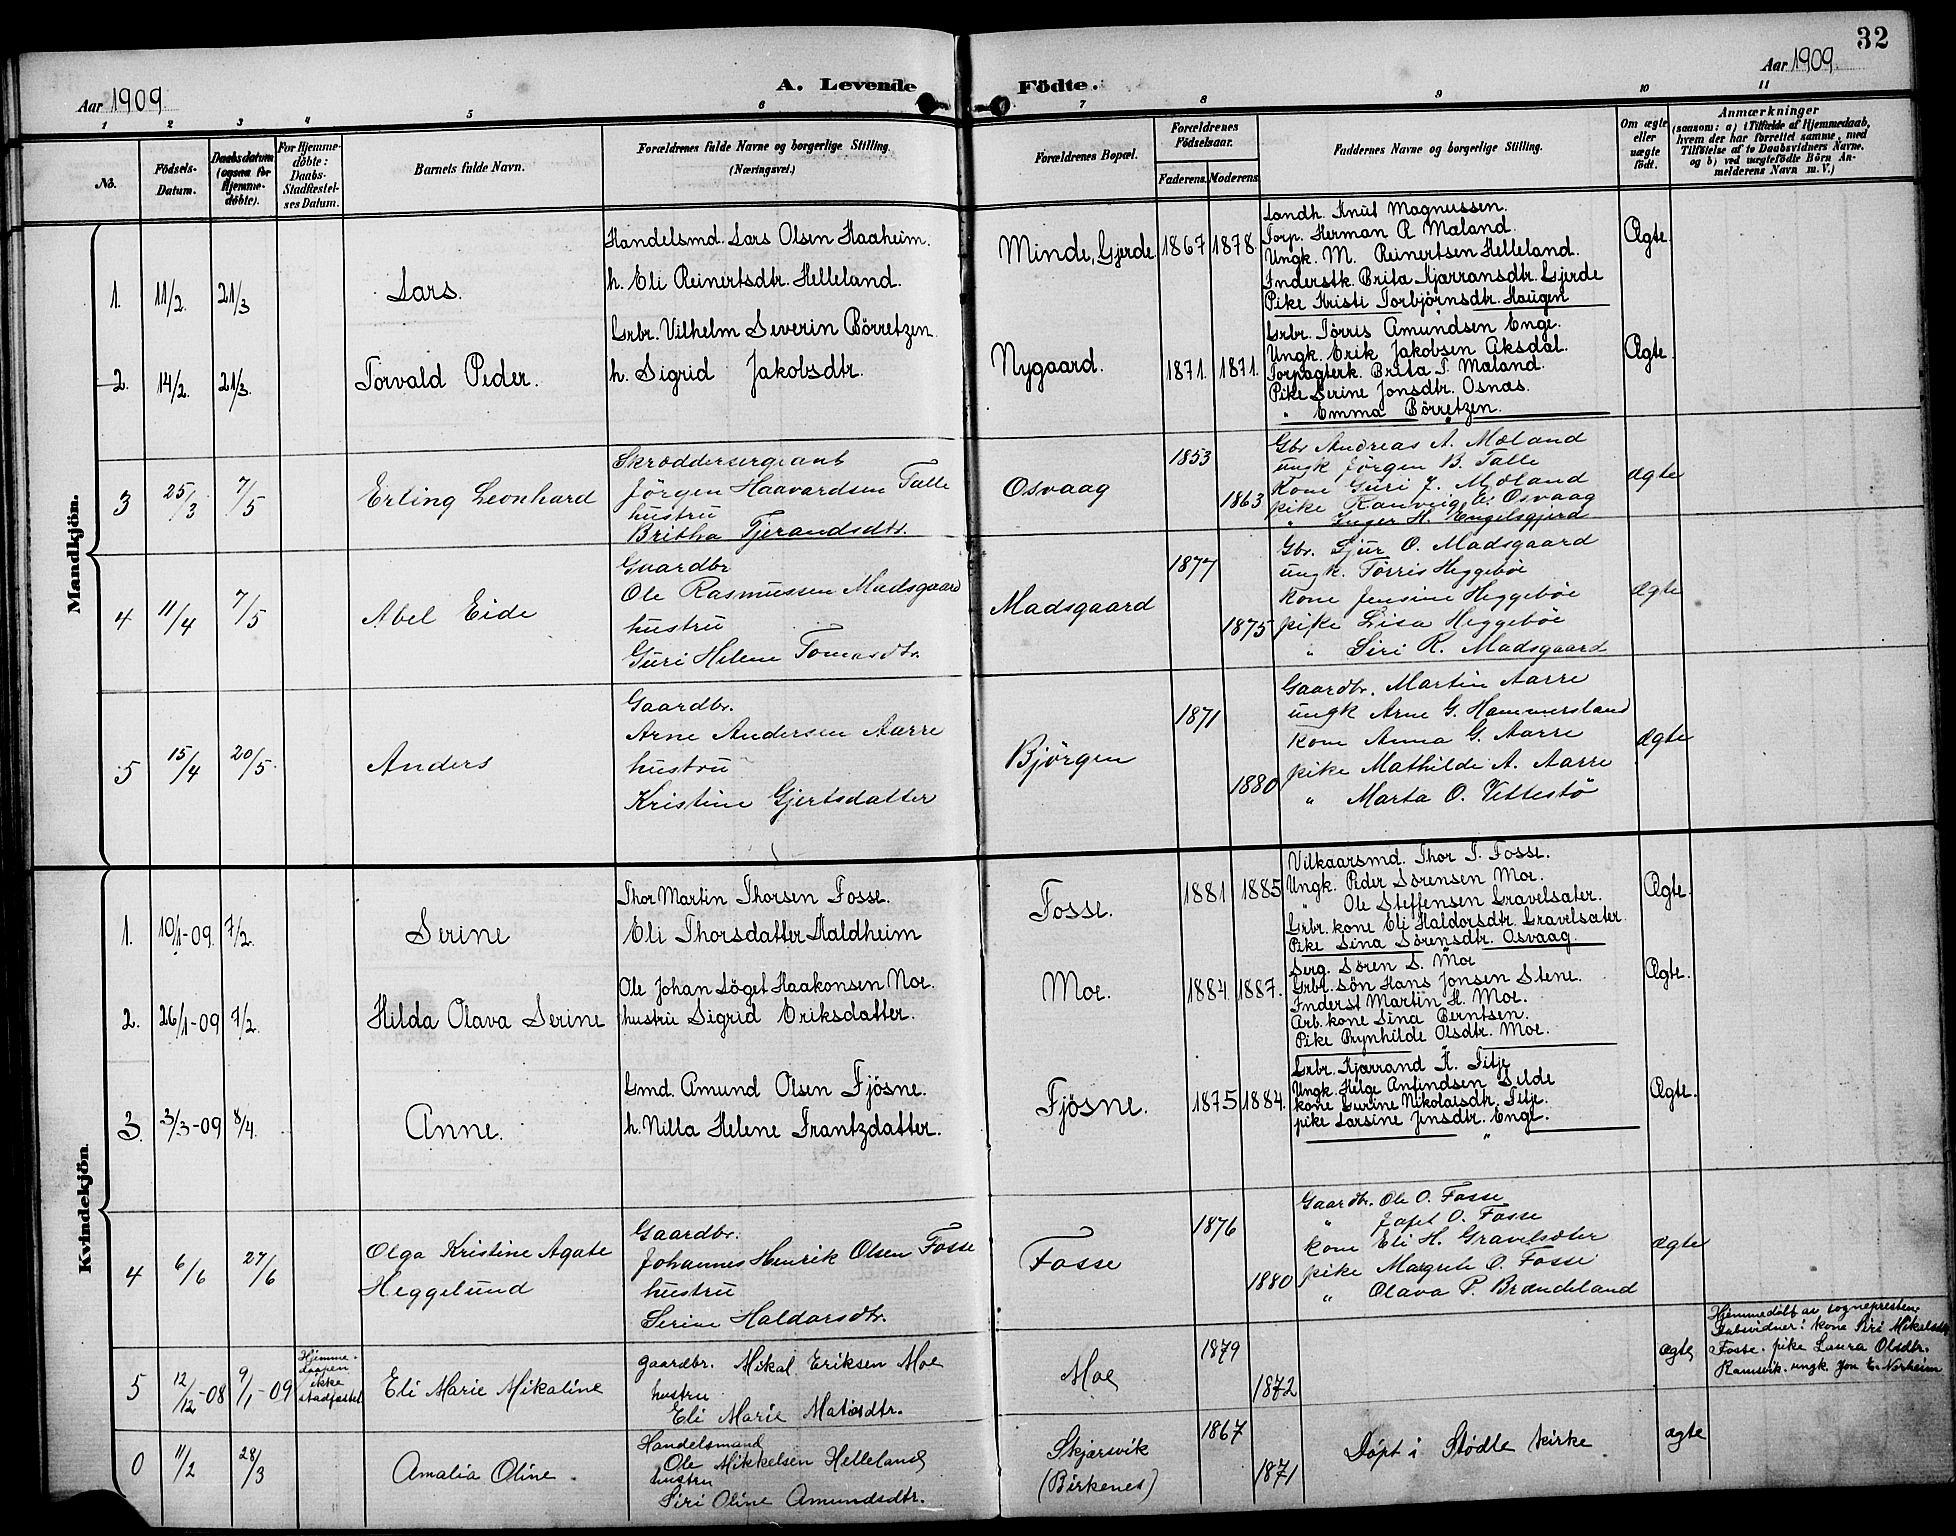 32
Aar 1909
A. Levende Födte.
Aar 1909
1 2 3 4 5 6 7 8 9 10 11
No.
Födsels-
Datum.
Daabsdatum
(ogsaa for
Hjemme-
döbte).
For Hjemme-
döbte:
Daabs-
Stadfæstel-
ses Datum.
Barnets fulde Navn.
Forældrenes fulde Navne og borgerlige Stilling.
(Næringsvei.)
Forældrenes Bopæl.
Forældrenes
Födselsaar.
Faderens. Moderens.
Faddernes Navne og borgerlige Stilling.
Om ægte
eller
uægte
födt.
Anmærkninger
(saasom: a) i Tilfælde af Hjemmedaab,
hvem der har forrettet samme, med
Tilföielse af to Daabsvidners Navne,
og b) ved uægtefödte Börn An-
melderens Navn m. V.)
Mandkjön.
1. 11/2. 21/3 Lars.
Handelsmd. Lars Olsen Haaheim.
h. Eli Reinertsdtr. Helleland.
Minde, Gjerde 1867 1878.
Landh. Knut Magnussen.
Torp. Herman R Mæland.
Ungk. M. Reinertsen Helleland.
Inderstk. Brita Kjærransdtr. Gjerde
Pike Kristi Torbjörnsdtr. Haugen
Ægte.
2. 14/2. 21/3. Torvald Peder.
Grbr. Vilhelm Severin Börretzen.
h. Sigrid Jakobsdtr.
Nygaard. 1871. 1871.
Grbr. Törris Amundsen Enge.
Ungk. Erik Jakobsen Aksdal.
Torpagterk. Brita T. Mæland.
Pike Serine Jonsdtr. Osnæs.
" Emma Börretzen.
Ægte.
3 25/3 7/5 Erling Leonhard
Skræddersergeant
Jörgen Haavardsen Talle
hustru
Britha Tjerandsdtr.
Osvaag 1853 1863
Gbr Andreas A. Mæland
ungk Jörgen B. Talle
kone Guri J. Mæland
pike Ranveig E. Osvaag
" Inger H. Engelsgjerd
ægte
4 11/4 7/5 Abel Eide
Gaardbr
Ole Rasmussen Madsgaard
hustru
Guri Helene Tomasdtr.
Madsgaard 1877 1875
Gbr. Sjur O. Madsgaard
ungk. Törris Heggeböe
kone Jensine Heggeböe
pike Lisa Heggeböe
" Siri R. Madsgaard
ægte
5 15/4 20/5. Anders
Gaardbr.
Arne Andersen Aarre
hustru
Kristine Gjertsdatter
Bjørgen 1871 1880
Gaardbr. Martin Aarre
ungk Arne G. Hammersland
kone Anna G. Aarre
pike Mathilde A. Aarre
" Marta O. Vettestö
ægte
Kvindekjön
1. 10/1-09. 7/2. Serine
Thor Martin Thorsen Fosse.
Eli Thorsdatter Haldheim
Fosse. 1881 1885
Vilkaarsmd. Thor T. Fosse.
Ungk. Peder Sörensen Moe.
" Ole Steffensen Gravelsæter.
Grbr. kone Eli Haldorsdtr. Gravelsæter.
Pike Sina Sörensdtr. Osvaag.
Ægte.
2. 26/1-09 7/2. Hilda Olava Serine
Ole Johan Löget Haakonsen Moe.
hustru Sigrid Eriksdatter.
Moe. 1884 1887.
Serg. Sören S. Moe
Grbr. sön Hans Jonsen Stene.
Inderst Martin H. Moe.
Arb. kone Sina Berntsen.
Pike Brynhilde Olsdtr. Moe.
Ægte.
3. 3/3-09 8/4. Anne.
Gmd. Amund Olsen Fjösne.
h. Nilla Helene Frantzdatter.
Fjösne. 1875 1884.
Grbr. Kjærrand K. Titje
Ungk. Helge Anfindsen Silde
kone Gurine Nikolaisdtr. Titje.
pike Larsine Jensdtr. Enge.
"
Ægte.
4 6/6 27/6 Olga Kristine Agate
Heggelund
Gaardbr.
Johannes Henrik Olsen Fosse
hustru
Serine Haldorsdtr.
Fosse 1876 1880
Gaardbr. Ole O. Fosse
" Jafet O. Fosse
kone Eli H. Gravelsæter
pike Magrete O. Fosse
" Olava P. Brændeland
ægte
5 12/12-08 9/1-09
Hjemme-
daapen
ikke
stadfæstet
Eli Marie Mikaline
gaardbr. Mikal Eriksen Moe
hustru
Eli Marie Matisdtr.
Moe 1879 1872
ægte
Hjemmedöbt av sognepresten.
Dabsvidner: kone Siri Mikelsdtr
Fosse. pike Laura Olsdtr.
Ramsvik. ungk Jon E. Norheim
0 11/2 28/3 Amalia Oline
Handelsmand
Ole Mikkelsen Helleland
hustru
Siri Oline Amundsdtr.
Skjersvik
(Birkenes)
1867 1871
Döpt i Stödle kirke
ægte